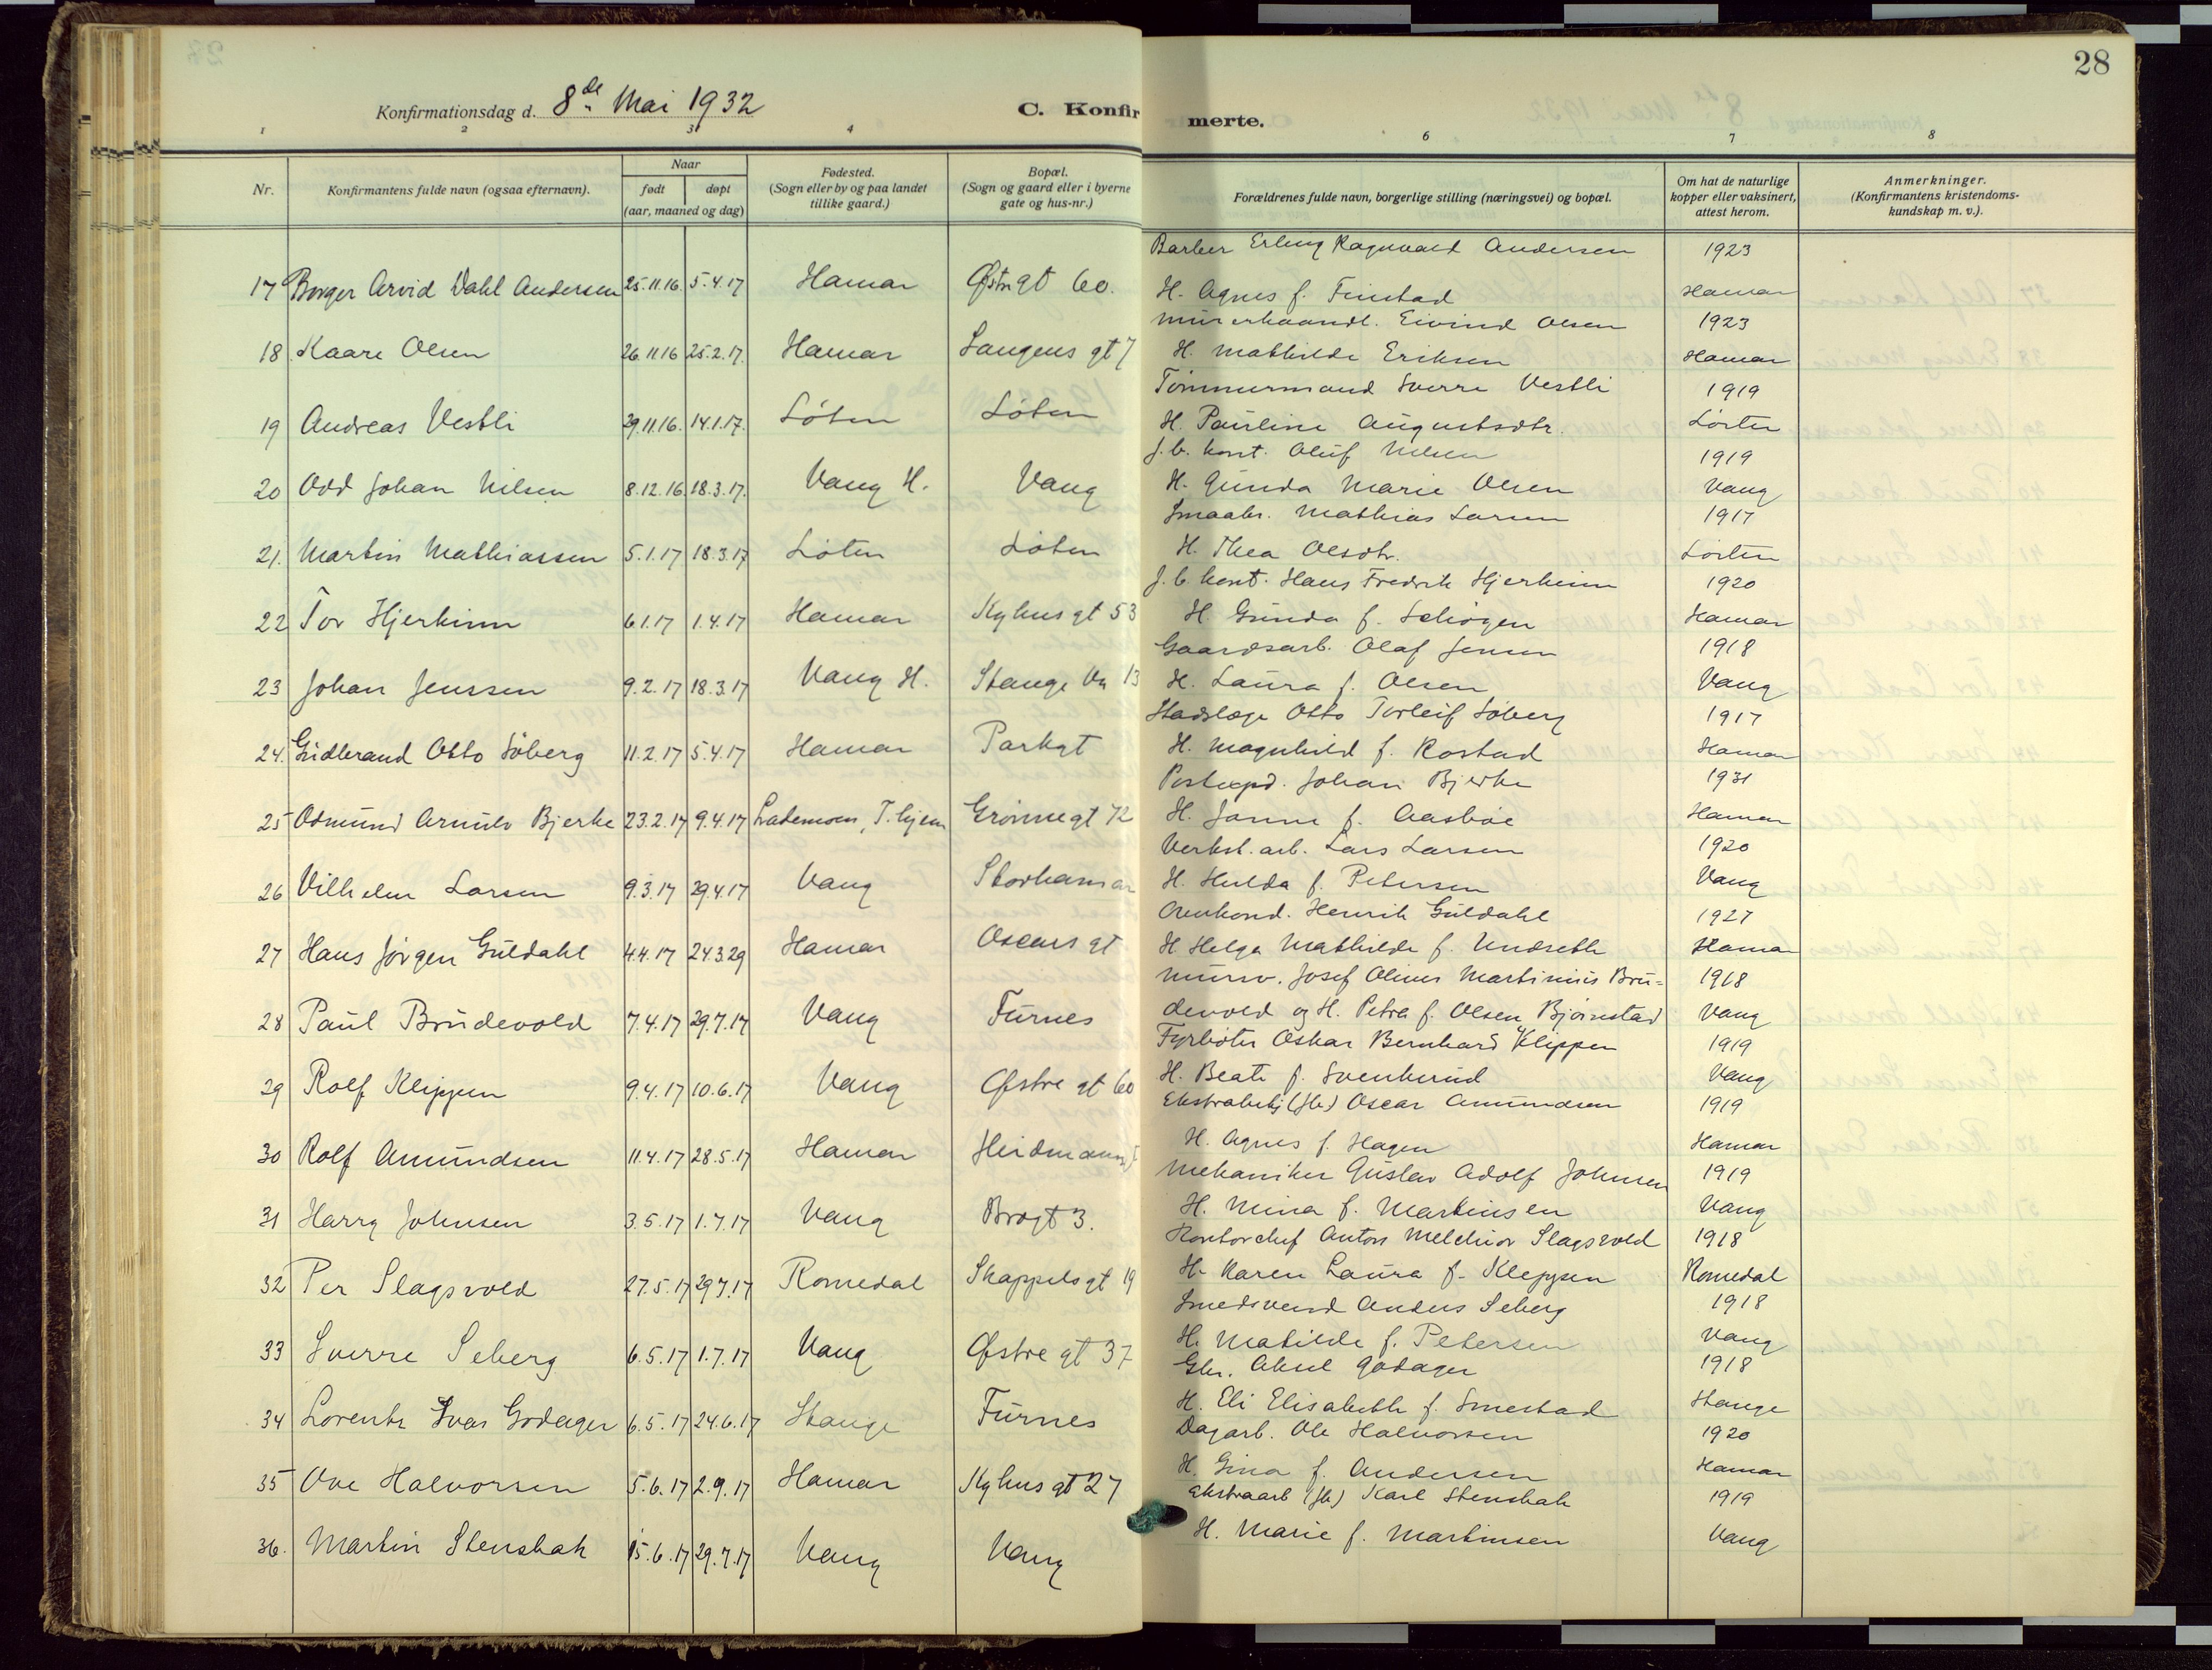 28
Konfirmationsdag d. 8de Mai 1932
C. Konfirmerte.
1 2 3 4 6 7 8
Nr. Konfirmantens fulde navn (ogsaa efternavn). Naar født døpt (aar, maaned og dag) Fødested. (Sogn eller by og paa landet tillike gaard.) Bopæl. (Sogn og gaard eller i byerne gate og hus-nr.) Forældrenes fulde navn, borgerlige stilling (næringsvei) og bopæl. Om hat de naturlige kopper eller vaksinert, attest herom. Anmerkninger. (Konfirmantens kristendomskundskap m. v.).
Barber Erling Ragnvald Andersen 1923
17 Borger Arvid Dahl Andersen 25.11.16. 5.4.17 Hamar Østregt 60. H. Agnes f. Finstad Hamar
Murerhaandl. Eivind Olsen 1923
18. Kaare Olsen 26.11.16 25.2.17. Hamar Langens gt 7 H. Mathilde Eriksen Hamar
Tømmermand Sverre Vestli 1919
19 Andreas Vestli 29.11.16. 14.1.17. Løten Løten H. Pauline Augustsdtr. Løiten
J.b. kont. Oluf Nilsen 1919
20 Odd Johan Nilsen 8.12.16. 18.3.17. Vang H. Vang H. Gunda Marie Olsen Vang
Smaabr. Mathias Larsen 1917
21. Martin Mathiassen 5.1.17 18.3.17 Løten Løten H. Thea Olsdtr. Løiten
J.b. kont. Hans Fredrik Hjerkinn 1920
22 Tor Hjerkinn 6.1.17 1.4.17 Hamar Kyhus gt 53 H. Gunda f. Schiøgen Hamar
Gaardsarb. Olaf Jensen 1918
23 Johan Jenssen 9.2.17 18.3.17 Vang H. Stange Vn 13 H. Laura f. Olsen Vang
Stadslæge Otto Torleif Søberg 1917
24. Gudbrand Otto Søberg 11.2.17 5.4.17 Hamar Parkgt H. Magnhild f. Rostad Hamar
Postexpd. Johan Bjerke 1931
25 Odmund Arnulv Bjerke 23.2.17 9.4.17 Lademoen, T.hjem Grønnegt 72 H. Janne f. Aasbøe Hamar
Verkst. arb. Lars Larsen 1920
26 Vilhelm Larsen 9.3.17 29.4.17 Vang Storhamar H. Hulda f. Petersen Vang
Ovnkond. Henrik Guldahl 1927
27 Hans Jørgen Guldahl 4.4.17 24.3.29 Hamar Oscars gt H Helga Mathilde f. Undseth Hamar
Murer. Josef Olines Martinius Bru- 1918
28 Paul Brudevold 7.4.17 29.7.17 Vang Furnes devold og H. Petra f. Olsen Bjørnstad Vang
Fyrbøter Oskar Bernhard Klippen 1919
29 Rolf Klippen 9.4.17 10.6.17 Vang Østre gt 60 H. Beate f. Svenkerud Vang
Ekstrabetj (Jb.) Oscar Amundsen 1919
30 Rolf Amundsen 11.4.17 28.5.17 Hamar H. Agnes f. Hagen Hamar
Mekaniker Gustav Adolf Johnsen 1919
31 Harry Johnsen 3.5.17 1.7.17 Vang Brogt 3. H. Mina f. Martinsen Vang
Kontorchef Anton Melchior Slagsvold 1918
32 Per Slagsvold 27.5.17 29.7.17 Romedal Skappels gt 19 H. Karen Laura f. Kleppen Romedal
Smedsvend Anders Seberg 1918
33 Sverre Seberg 6.5.17 1.7.17 Vang Østre gt 37 H. Matilde f. Petersen Vang
Gbr. Aksel Godager 1918
34 Lorentz Ivar Godager 6.5.17 24.6.17 Stange Furnes H. Eli Elisabeth f. Smestad Stange
Dagarb. Ole Halvorsen 1920
35 Ove Halvorsen 5.6.17 2.9.17 Hamar Kyhus gt 27 H. Gina f. Andersen Hamar
Ekstraarb (Jb) Karl Stenshak 1919
36. Martin Stenshak 15.6.17 29.7.17 Vang Vang H. Marie f. Martinsen Vang